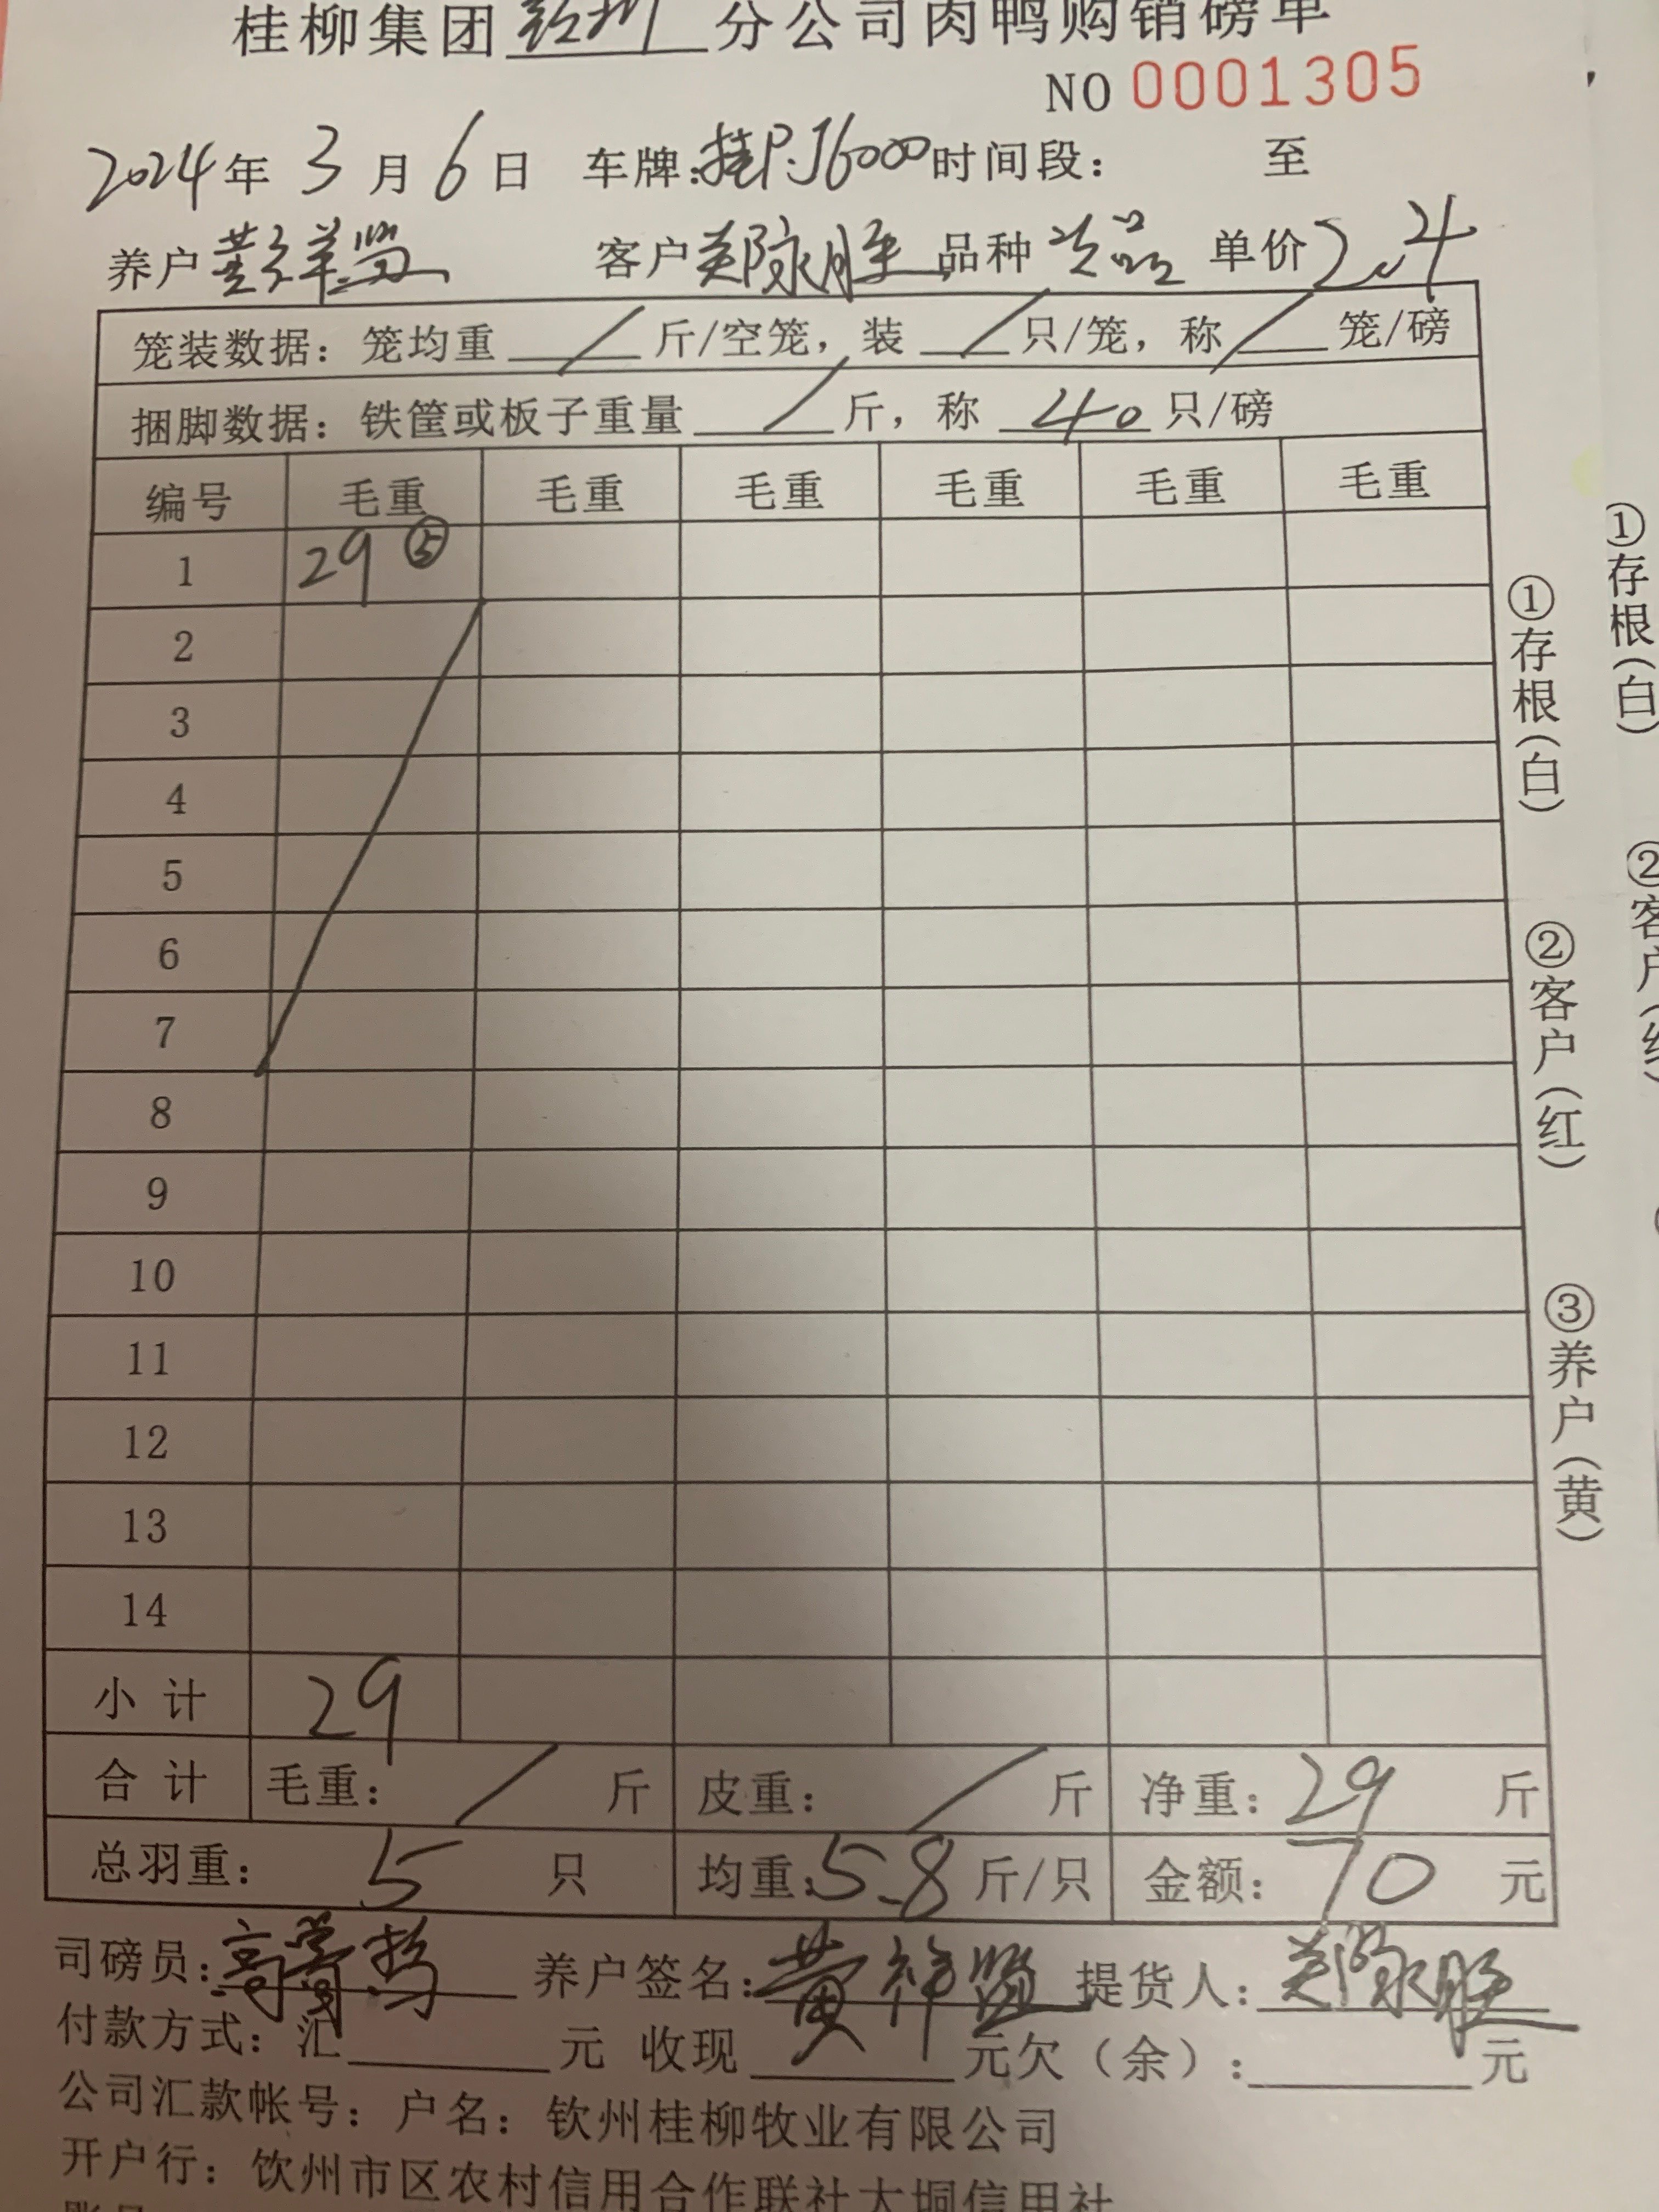 桂柳集团钦州分公司肉鸭购销磅单
NO 0001305
2024年 3月 6日 车牌:桂P.J6000 时间段: 至
养户 黄祥 客户 郑永胜 品种 次品 单价 2.4
笼装数据: 笼均重 / 斤/空笼, 装 / 只/笼, 称 / 笼/磅
捆脚数据: 铁筐或板子重量 / 斤, 称 40 只/磅
编号 毛重 毛重 毛重 毛重 毛重 毛重
1 29 ⑤
2
3
4
5
6
7
8
9
10
11
12
13
14
小计 29
合计 毛重: / 斤 皮重: / 斤 净重: 29 斤
总羽重: 5 只 均重: 5.8 斤/只 金额: 70 元
司磅员: 高 养户签名: 黄祥 提货人: 郑永胜
付款方式: 汇 元 收现 元欠(余): 元
公司汇款帐号: 户名: 钦州桂柳牧业有限公司
开户行: 钦州市区农村信用合作联社大垌信用社
①存根(白)
②客户(红)
③养户(黄)
①存根(白)
②客户(红)